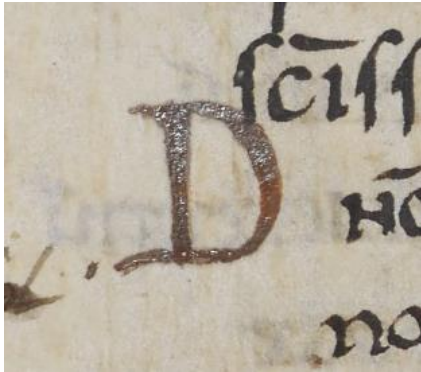 ſcīſſ
D
nō
no